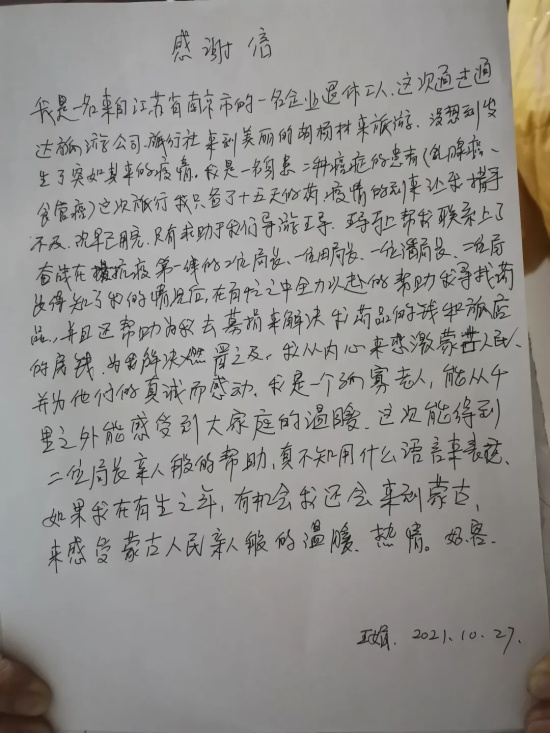 感谢信
我是一名来自江苏省南京市的一名企业退休工人、这次通过通
达旅游公司旅行社来到美丽的胡杨林来旅游、没想到发
生了突如其来的疫情。我是一名身患二种癌症的患者（乳腺癌、
食管癌）这次旅行我只备了十五天的药、疫情的到来让我措手
不及、药早已用完、只有求助于我们导游王导、王导马上帮我联系上了
奋战在抗疫第一线的二位局长、一位田局长、一位潘局长、二位局
长得知了我的情况后、在百忙之中全力以赴的帮助我寻找药
品、并且还帮助为我去募捐来解决我药品的钱和旅店
的房钱、为我解决燃眉之及、我从内心来感激蒙古人民、
并为他们的真诚而感动、我是一个孤寡老人、能从千
里之外能感受到大家庭的温暖、这次能得到
二位局长亲人般的帮助、真不知用什么语言来表达、
如果我在有生之年，有机会我还会来到蒙古，
来感受蒙古人民亲人般的温暖、热情。好客、
2021.10.27.